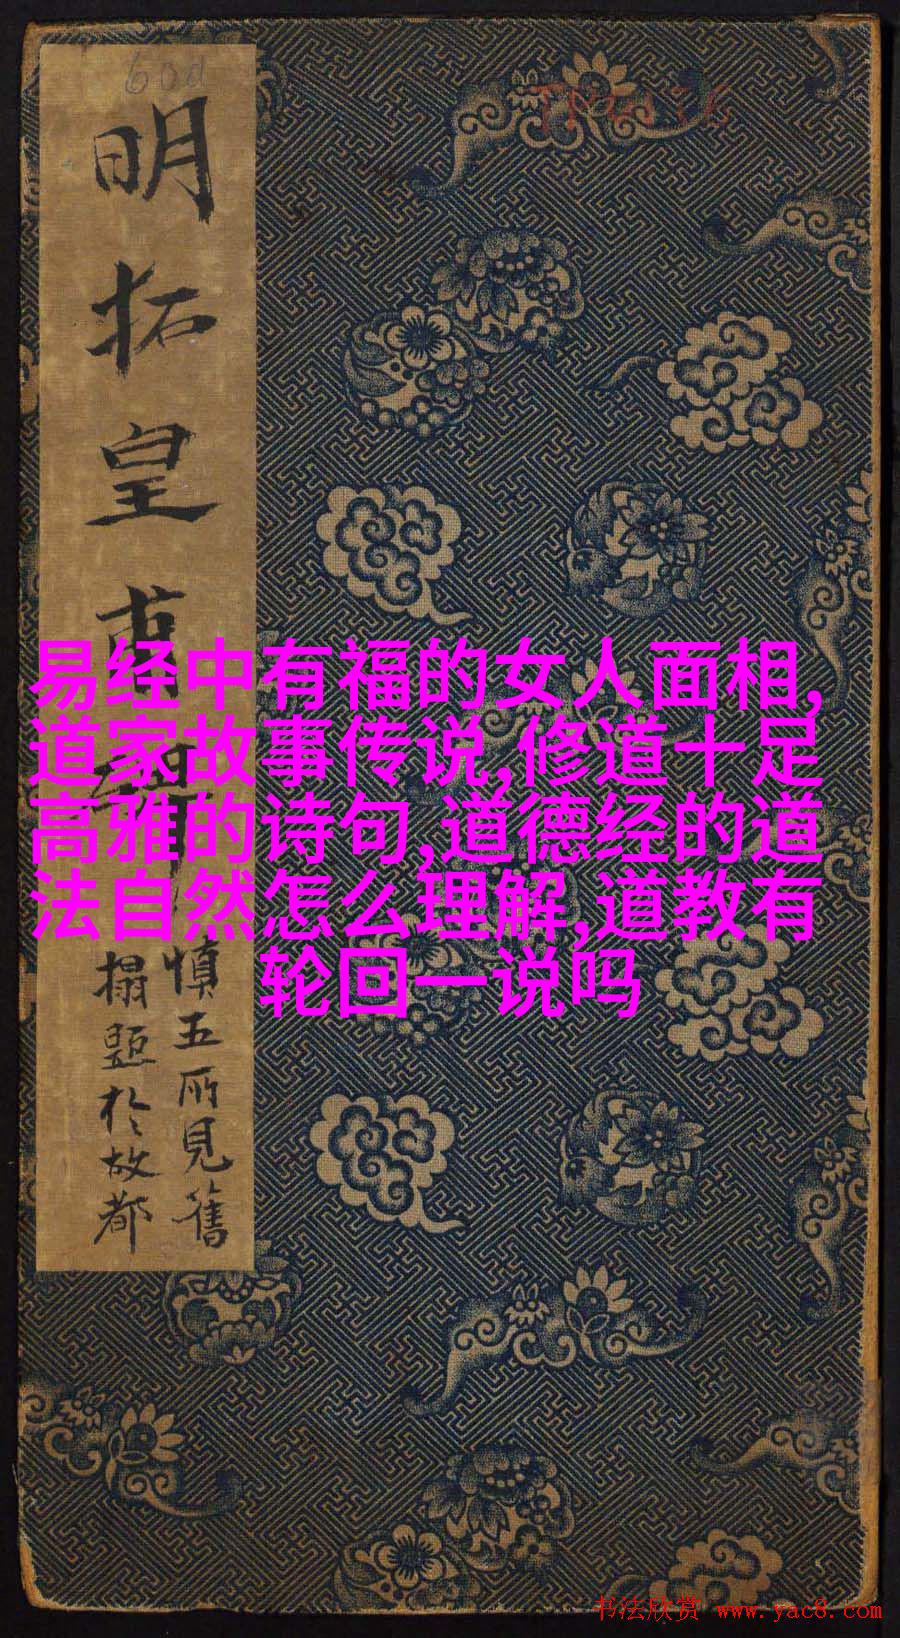 600
明拓皇甫
慎五所見舊
搨題於故都
易经中有福的女人面相,
道家故事传说,修道十足
高雅的诗句,道德经的道
法自然怎么理解,道教有
轮回一说吗
书法欣赏 www.yac8.com